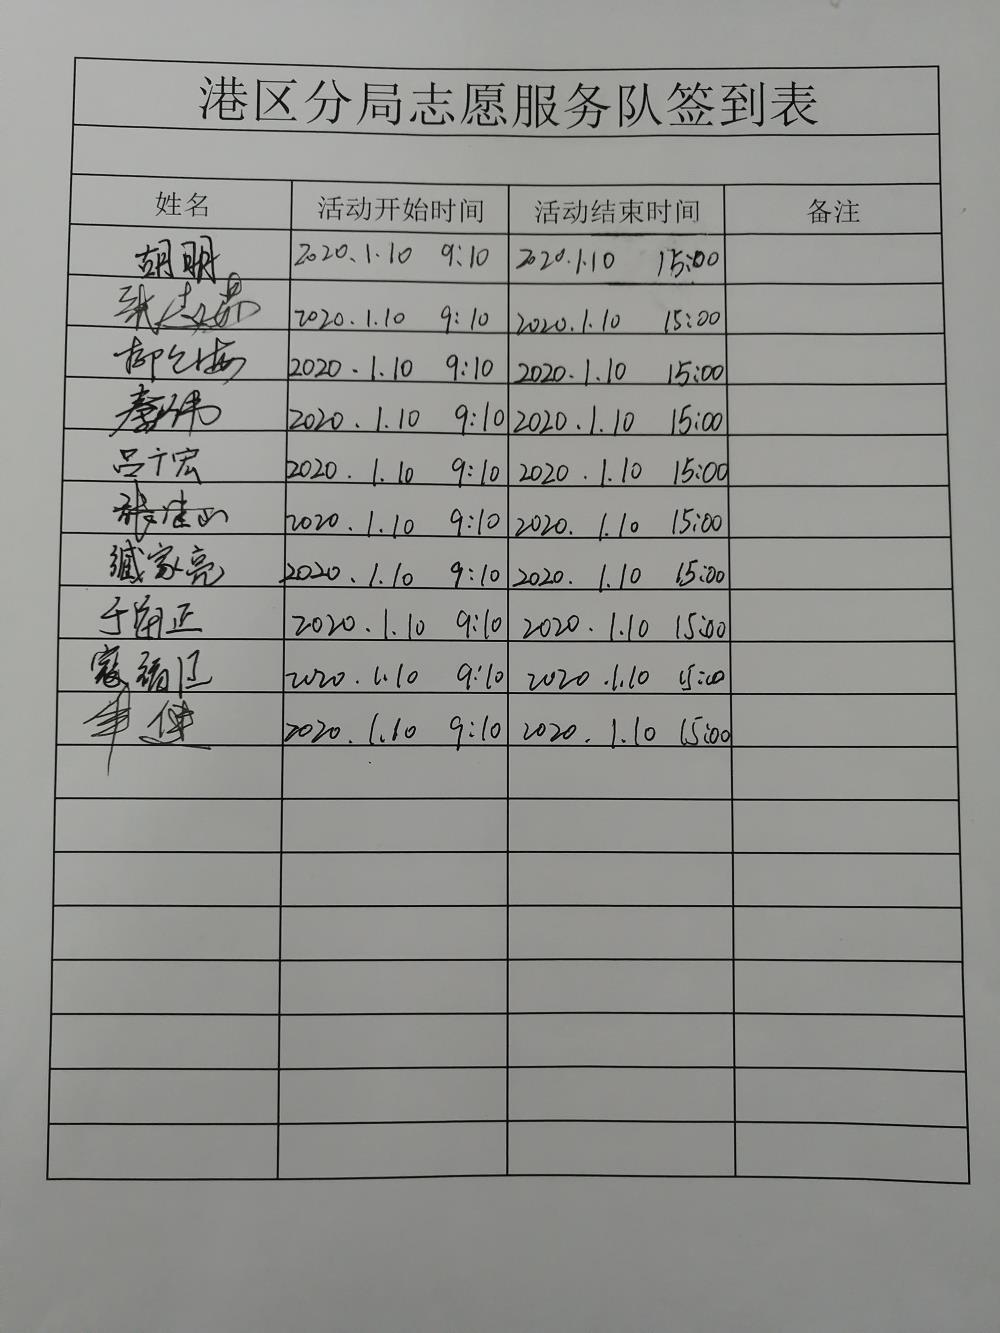 港区分局志愿服务队签到表
姓名 活动开始时间 活动结束时间 备注
胡明 2020.1.10 9:10 2020.1.10 15:00
2020.1.10 9:10 2020.1.10 15:00
2020.1.10 9:10 2020.1.10 15:00
2020.1.10 9:10 2020.1.10 15:00
吕广宏 2020.1.10 9:10 2020.1.10 15:00
2020.1.10 9:10 2020.1.10 15:00
臧家亮 2020.1.10 9:10 2020.1.10 15:00
2020.1.10 9:10 2020.1.10 15:00
2020.1.10 9:10 2020.1.10 15:00
2020.1.10 9:10 2020.1.10 15:00